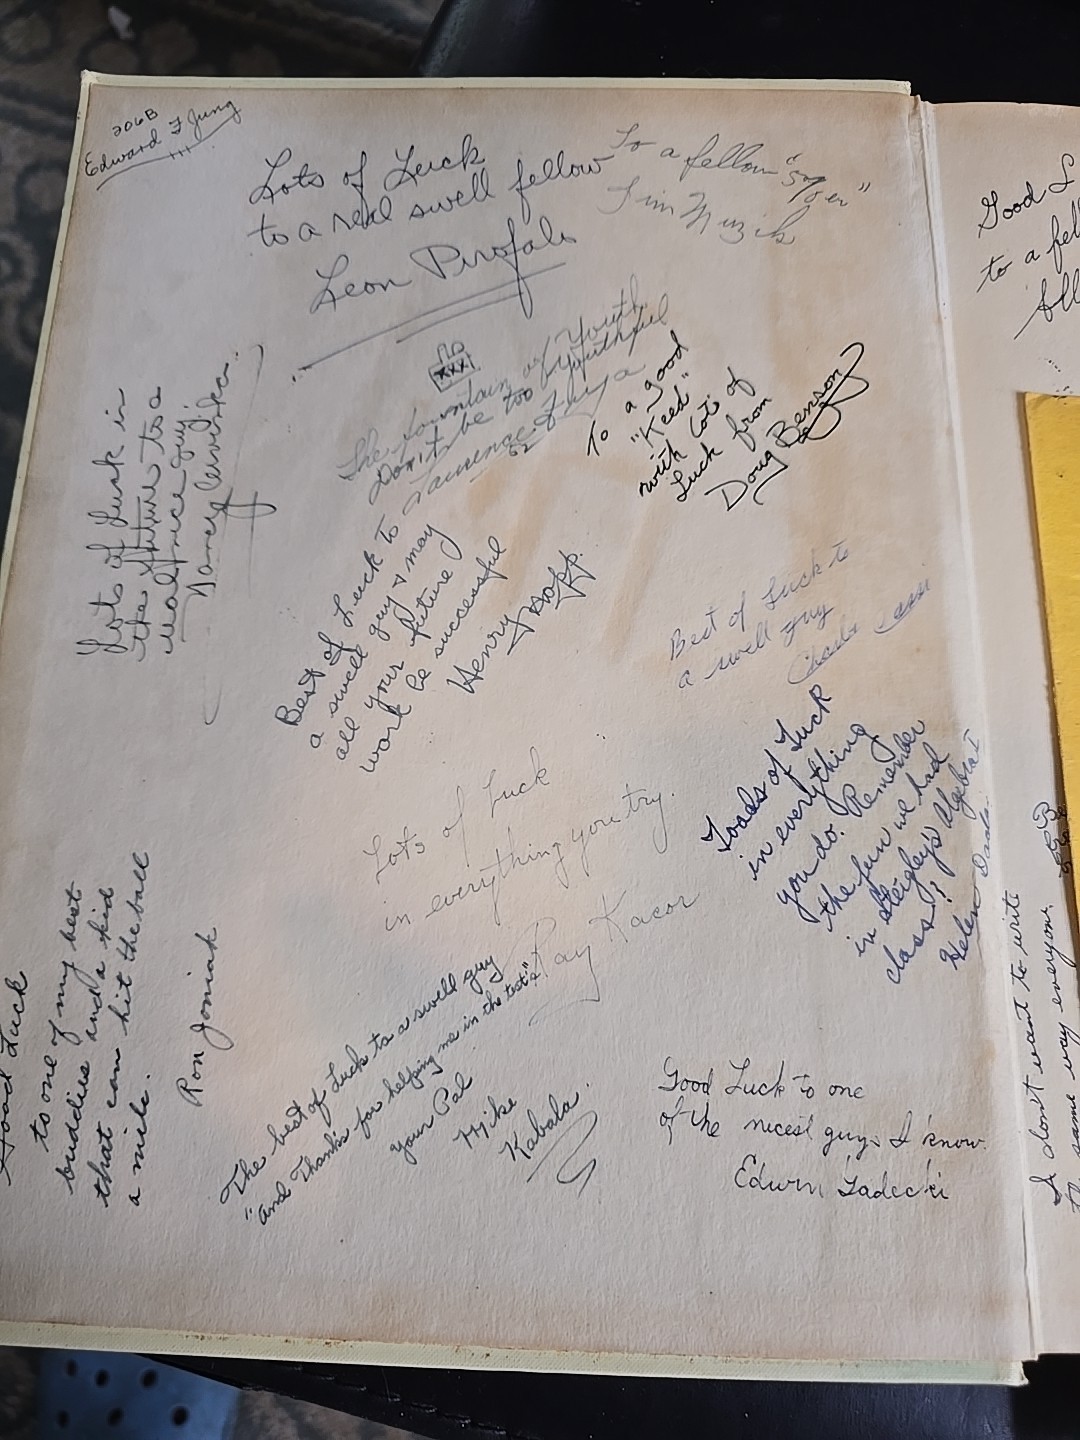 206B
Edward F Jung
Lots of Luck
to a real swell fellow
Leon Pirofalo
To a fellow "
Jim Muzik
XXX
The fountain of Youth
Don't be too youthful
To a good
"Keed"
with lots of
Luck from
Doug Benson
Lots of Luck in
the future to a
real nice guy.
Nancy
Best of Luck to
a swell guy & may
all your future
work be successful
Henry Sopp.
Best of Luck to
a swell guy
Lots of Luck
in everything you try.
Ray Kacor
Loads of Luck
in everything
you do. Remember
the fun we had
in Steigley's Algebra I
class!?
Helen
Good Luck
to one of my best
buddies and a kid
that can hit the ball
a mile.
Ron Joniak
The best of Luck to a swell guy
"and Thanks for helping me in the test's"
your Pal
Mike
Kabala
Good Luck to one
of the nicest guys I know.
Edwin Zadecki
Good L
to a fel
All
I don't want to write
the same way everyone